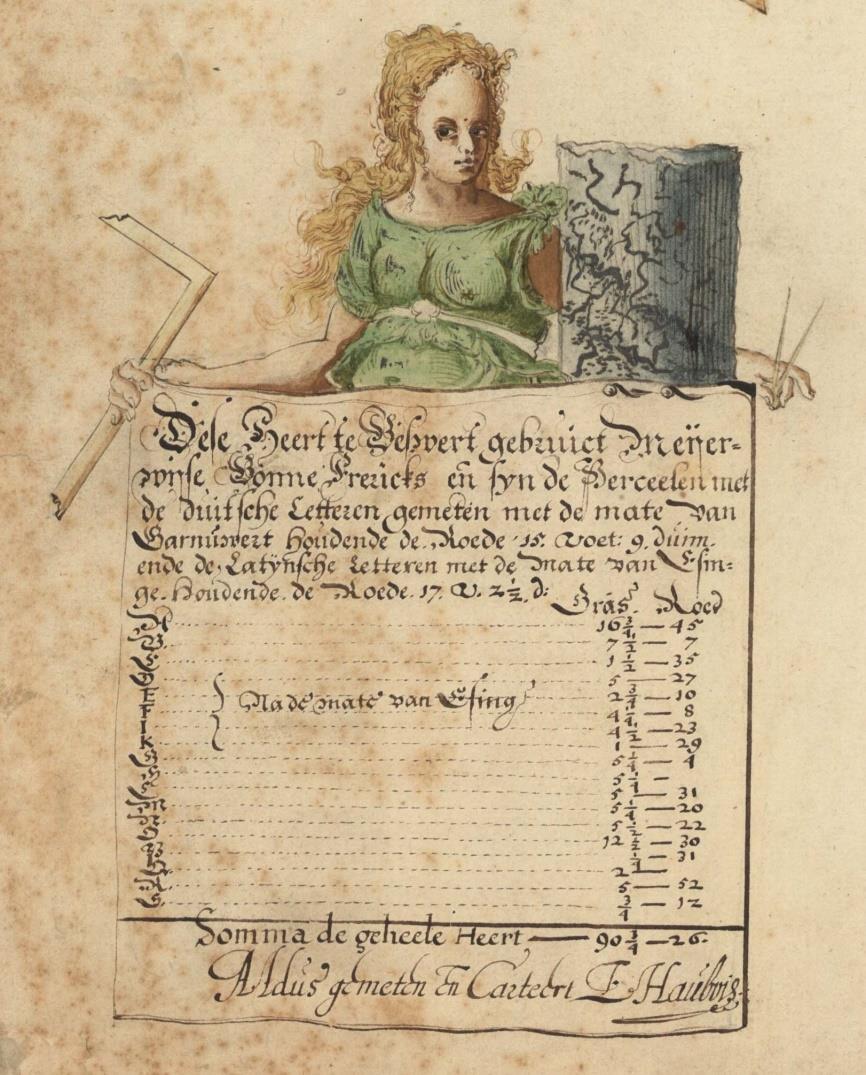 Dese Heert te Beswert gebruict Meÿer-
wisse Bonne Frericks eñ syn de Perceelen met
de duitsche Letteren gemeten met de mate van
Garnuwert Houdende de Roede 15. Voet: 9. duim.
ende de Latÿnsche Letteren met de Mate van Esin-
ge. Houdende. de Roede. 17. V. 2½. d:
Gras. Roed
16 ¾ — 45
7 — 7
1 ½ — 35
5 — 27
Na de mate van Esinge
2 — 10
4 — 8
4 — 23
1 — 29
5 — 4
5 —
5 — 31
5 — 20
5 — 22
12 ½ — 30
31
2
5 — 52
¾ — 12
Somma de geheele Heert — 90 ¾ — 26.
Aldus gemeten En Carteert